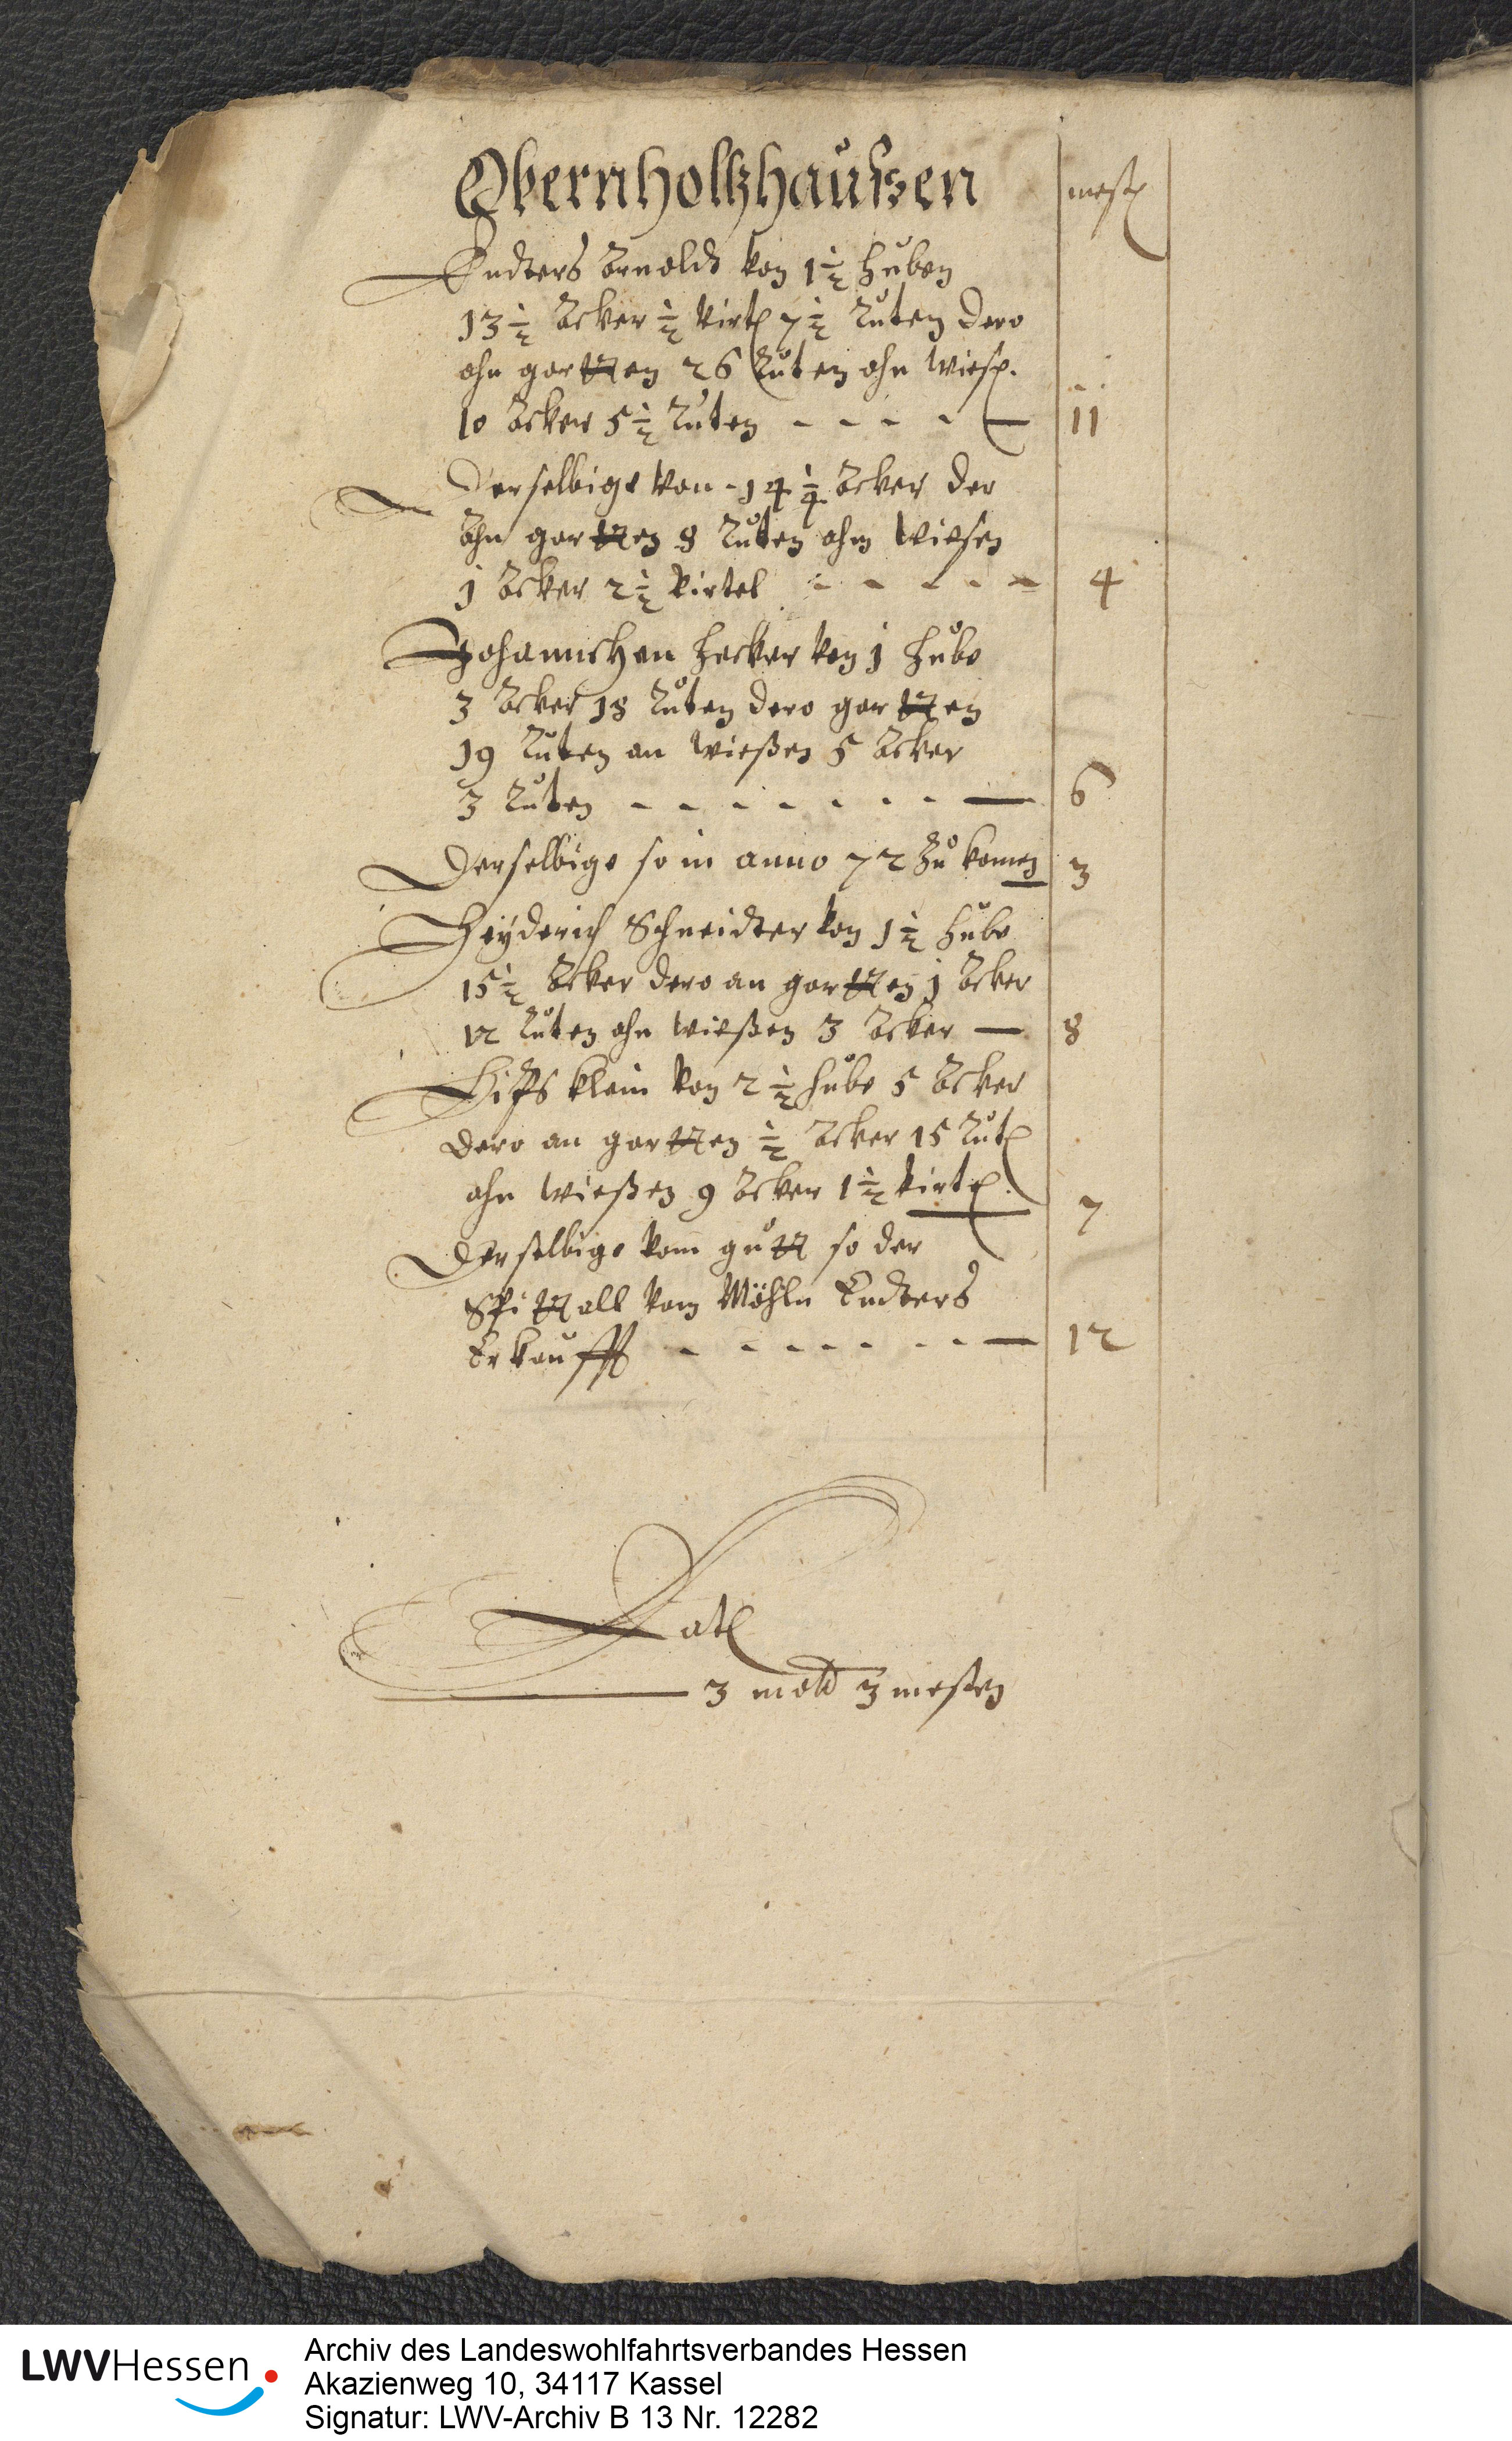 Obernholtzhaußen
meß
Endters Arnoldt von 1½ huben
13½ Acker ½ virt 7½ Ruten dero
ahn gartten 26 Ruten ahn wieß.
10 Acker 5½ Ruten - - - - — 11
Derselbige von - 14¼ Acker der
Ahn gartten 8 Ruten ahn wiesen
1 Acker 2½ virtel - - - - - 4
Johannchen Hecker von 1 Hube
3 Acker 18 Ruten dero gartten
19 Ruten an wießen 5 Acker
3 Ruten - - - - - - - — 6
Derselbige so in anno 72 zu komen 3
Heyderich Schneidter von 1½ hube
15½ Acker dero an gartten 1 Acker
12 Ruten ahn wießen 3 Acker — 8
klein von 2½ hube 5 Acker
dero an gartten ½ Acker 15 Rut
ahn wießen 9 Acker 1½ virt. 7
Derselbige vom gutt so der
Spittall vom Möhln Endters
Erkaufft - - - - - - - — 12
Lat
3 mltr 3 meßen
LWVHessen
Archiv des Landeswohlfahrtsverbandes Hessen
Akazienweg 10, 34117 Kassel
Signatur: LWV-Archiv B 13 Nr. 12282